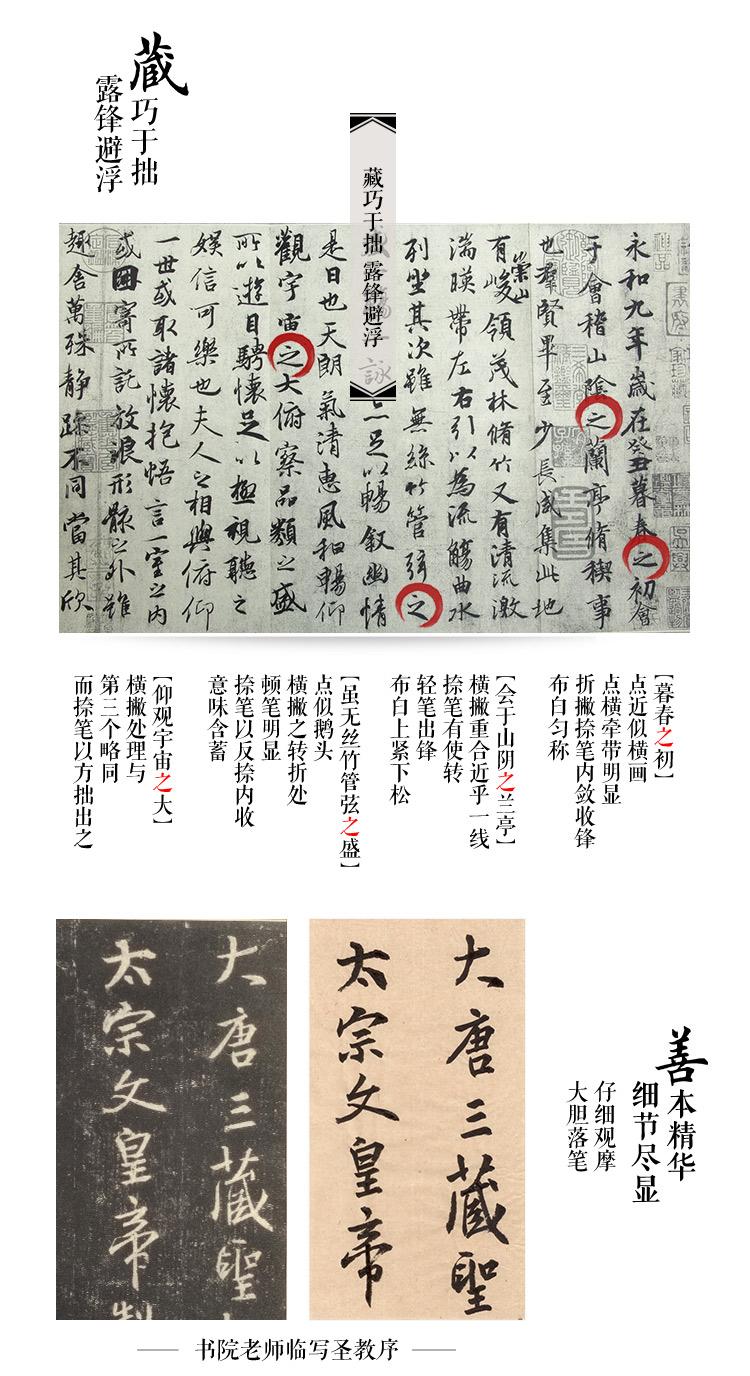 藏巧于拙
露锋避浮
藏巧于拙 露锋避浮
永和九年歲在癸丑暮春之初會
于會稽山陰之蘭亭脩稧事
也羣賢畢至少長咸集此地
有崇山峻領茂林脩竹又有清流激
湍暎帶左右引以為流觴曲水
列坐其次雖無絲竹管弦之
一詠亦足以暢敘幽情
是日也天朗氣清惠風和暢仰
觀宇宙之大俯察品類之盛
所以遊目騁懷足以極視聽之
娛信可樂也夫人之相與俯仰
一世或取諸懷抱悟言一室之內
或因寄所託放浪形骸之外雖
趣舍萬殊靜躁不同當其欣
【暮春之初】
点近似横画
点横牵带明显
折撇捺笔内敛收锋
布白匀称
【会于山阴之兰亭】
横撇重合近乎一线
捺笔有使转
轻笔出锋
布白上紧下松
【虽无丝竹管弦之盛】
点似鹅头
横撇之转折处
顿笔明显
捺笔以反捺内收
意味含蓄
【仰观宇宙之大】
横撇处理与
第三个略同
而捺笔以方拙出之
大唐三藏聖
太宗文皇帝製
大唐三藏聖
太宗文皇帝
善本精华
细节尽显
仔细观摩
大胆落笔
书院老师临写圣教序